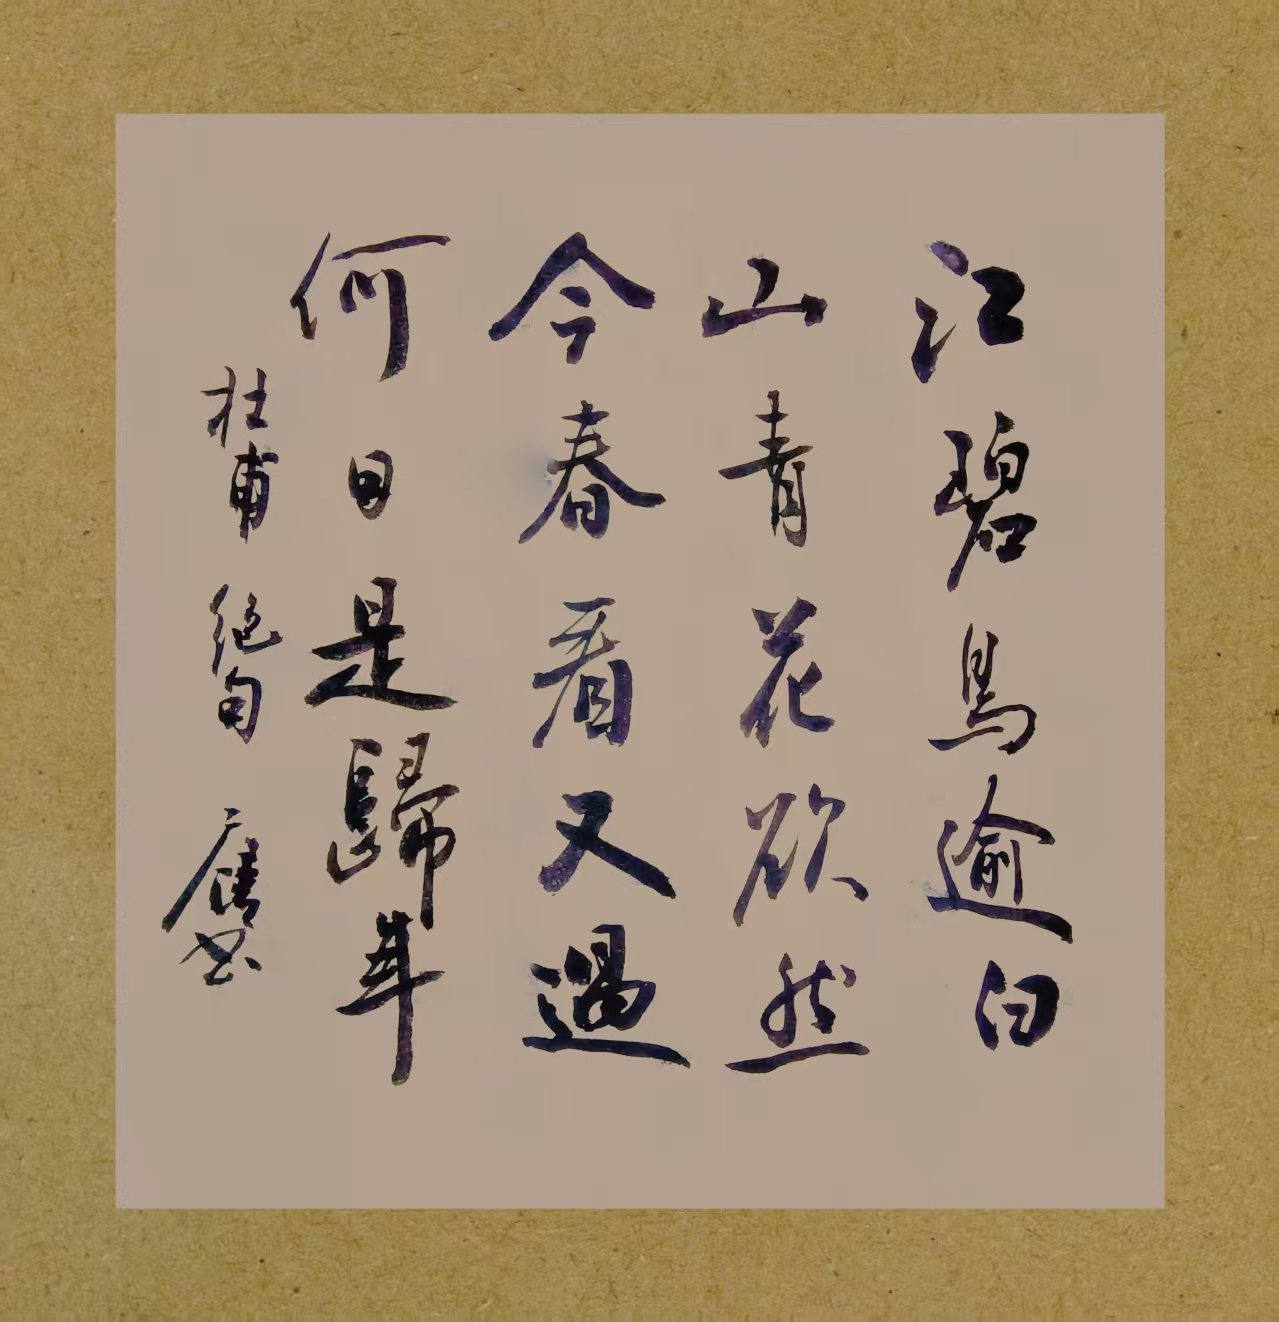 江碧鳥逾白
山青花欲然
今春看又過
何日是歸年
杜甫 絕句
書